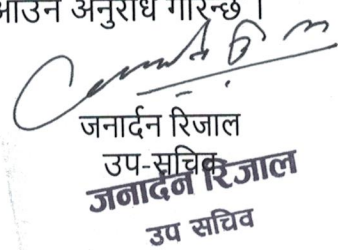 आउन अनुरोध गरिन्छ ।
जनार्दन रिजाल
उप-सचिव
जनार्दन रिजाल
उप सचिव